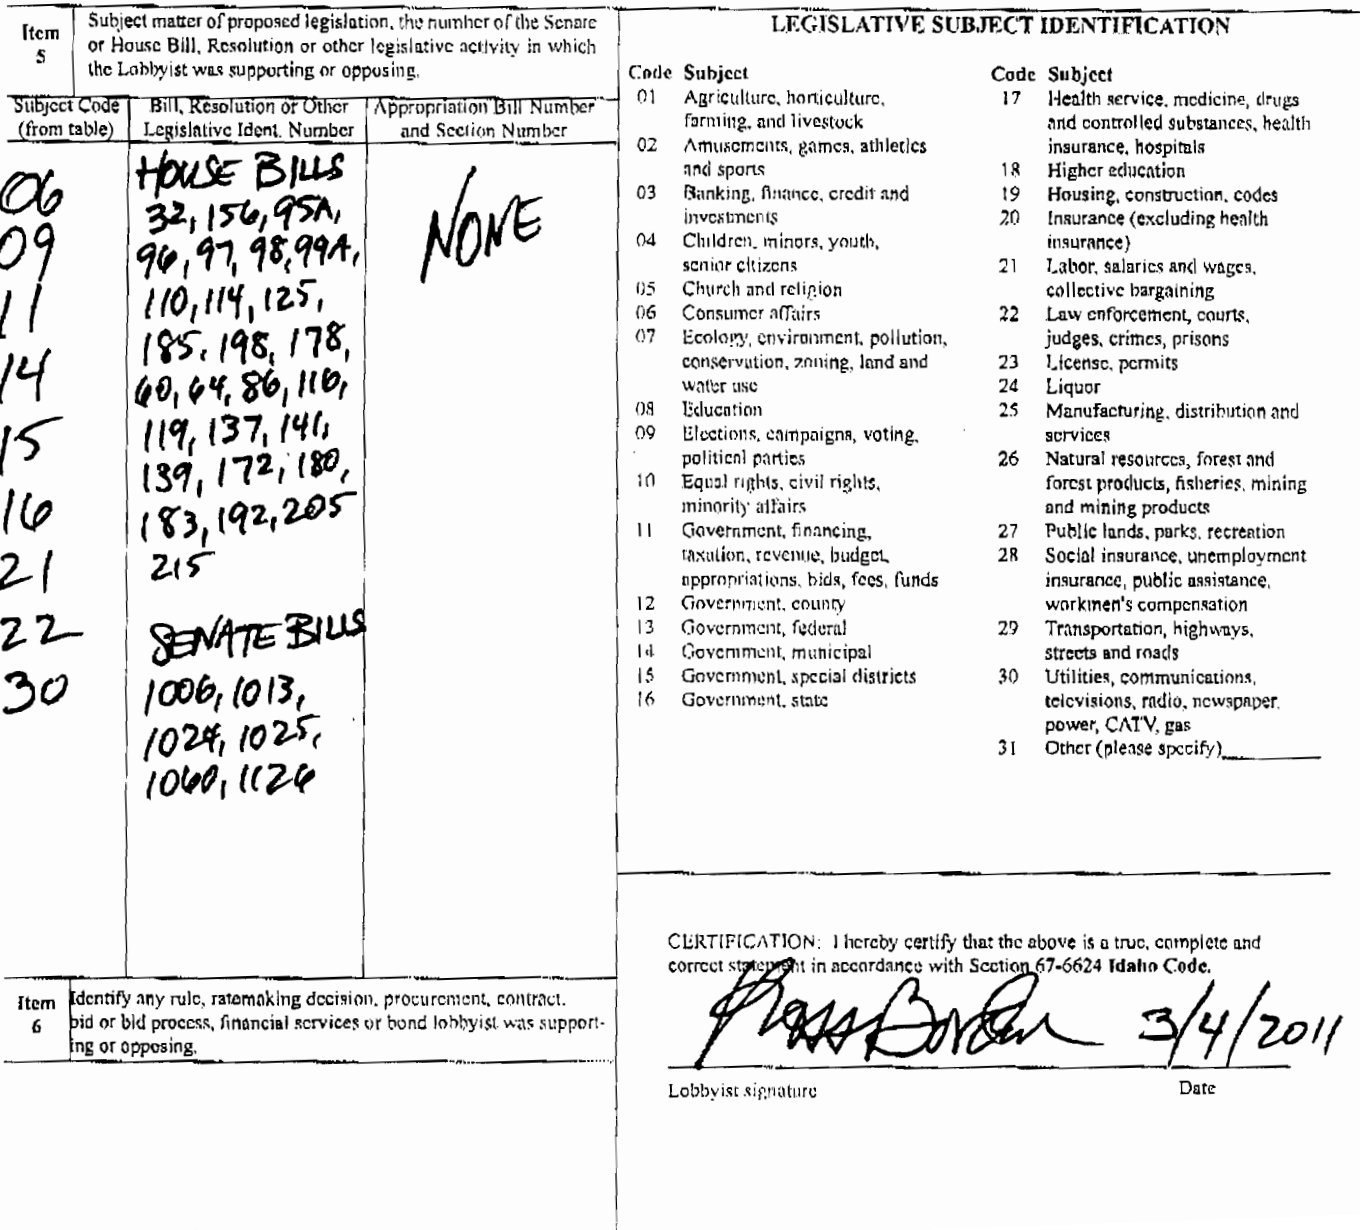 Item
5
Subject matter of proposed legislation, the number of the Senate
or House Bill, Resolution or other legislative activity in which
the Lobbyist was supporting or opposing.
Subject Code
(from table)
Bill, Resolution or Other
Legislative Ident. Number
Appropriation Bill Number
and Section Number
06
09
11
14
15
16
21
22
30
HOUSE BILLS
32, 156, 95A,
96, 97, 98, 99A,
110, 114, 125,
185, 198, 178,
60, 64, 86, 116,
119, 137, 141,
139, 172, 180,
183, 192, 205
215
SENATE BILLS
1006, 1013,
1024, 1025,
1060, 1126
NONE
Item
6
Identify any rule, ratemaking decision, procurement, contract,
bid or bid process, financial services or bond lobbyist was support-
ing or opposing.
LEGISLATIVE SUBJECT IDENTIFICATION
Code Subject
01 Agriculture, horticulture,
farming, and livestock
02 Amusements, games, athletics
and sports
03 Banking, finance, credit and
investments
04 Children, minors, youth,
senior citizens
05 Church and religion
06 Consumer affairs
07 Ecology, environment, pollution,
conservation, zoning, land and
water use
08 Education
09 Elections, campaigns, voting,
political parties
10 Equal rights, civil rights,
minority affairs
11 Government, financing,
taxation, revenue, budget,
appropriations, bids, fees, funds
12 Government, county
13 Government, federal
14 Government, municipal
15 Government, special districts
16 Government, state
Code Subject
17 Health service, medicine, drugs
and controlled substances, health
insurance, hospitals
18 Higher education
19 Housing, construction, codes
20 Insurance (excluding health
insurance)
21 Labor, salaries and wages,
collective bargaining
22 Law enforcement, courts,
judges, crimes, prisons
23 License, permits
24 Liquor
25 Manufacturing, distribution and
services
26 Natural resources, forest and
forest products, fisheries, mining
and mining products
27 Public lands, parks, recreation
28 Social insurance, unemployment
insurance, public assistance,
workmen's compensation
29 Transportation, highways,
streets and roads
30 Utilities, communications,
televisions, radio, newspaper,
power, CATV, gas
31 Other (please specify)
CERTIFICATION: I hereby certify that the above is a true, complete and
correct statement in accordance with Section 67-6624 Idaho Code.
3/4/2011
Lobbyist signature
Date